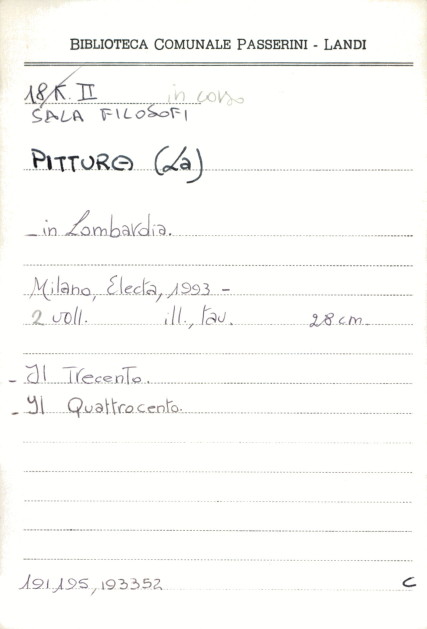 BIBLIOTECA COMUNALE PASSERINI - LANDI
18 K. II in corso
SALA FILOSOFI
PITTURA (La)
_ in Lombardia.
Milano, Electa, 1993 -
2 voll. ill., tav. 28 cm.
- Il Trecento.
- Il Quattrocento.
191195, 193352 C